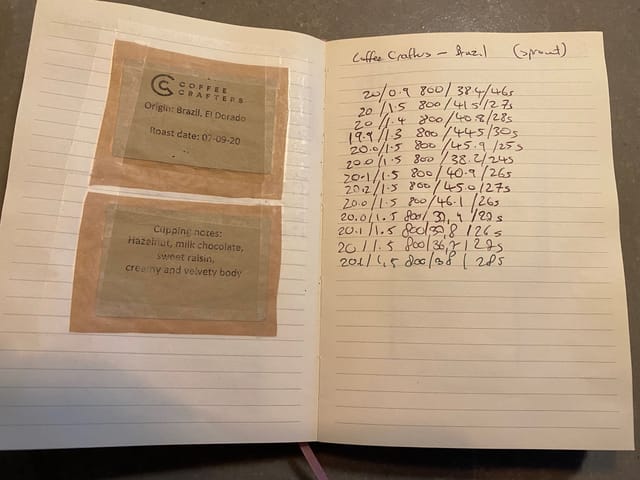 COFFEE
CRAFTERS
Origin: Brazil, El Dorado
Roast date: 07-09-20
Cupping notes:
Hazelnut, milk chocolate,
sweet raisin,
creamy and velvety body
Coffee Crafters - Brazil (sprout)
20/0.9 800/38.4/46s
20/1.5 800/41.5/27s
20/1.4 800/40.8/28s
19.9/1.3 800/44.5/30s
20.0/1.5 800/45.9/25s
20.0/1.5 800/38.2/24s
20.1/1.5 800/40.9/26s
20.2/1.5 800/45.0/27s
20.0/1.5 800/46.1/26s
20.0/1.5 800/
20.1/1.5 800/39,8/26s
20/1.5 800/36,7/
20.1/1,5 800/38/28s